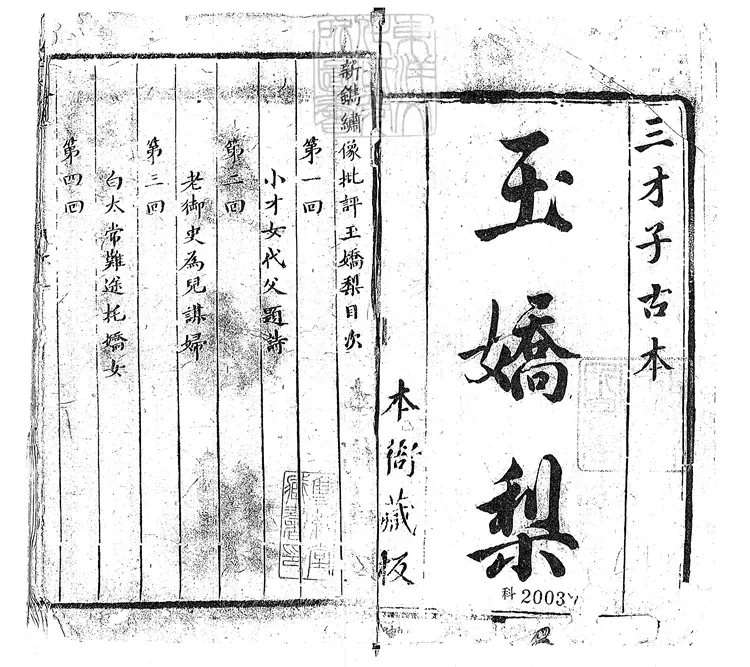 三才子古本
玉嬌梨
本衙藏板
科 2003
新鐫繡像批評玉嬌梨目次
第一回
小才女代父題詩
第二回
老御史為兒謀婦
第三回
白太常難途托嬌女
第四回